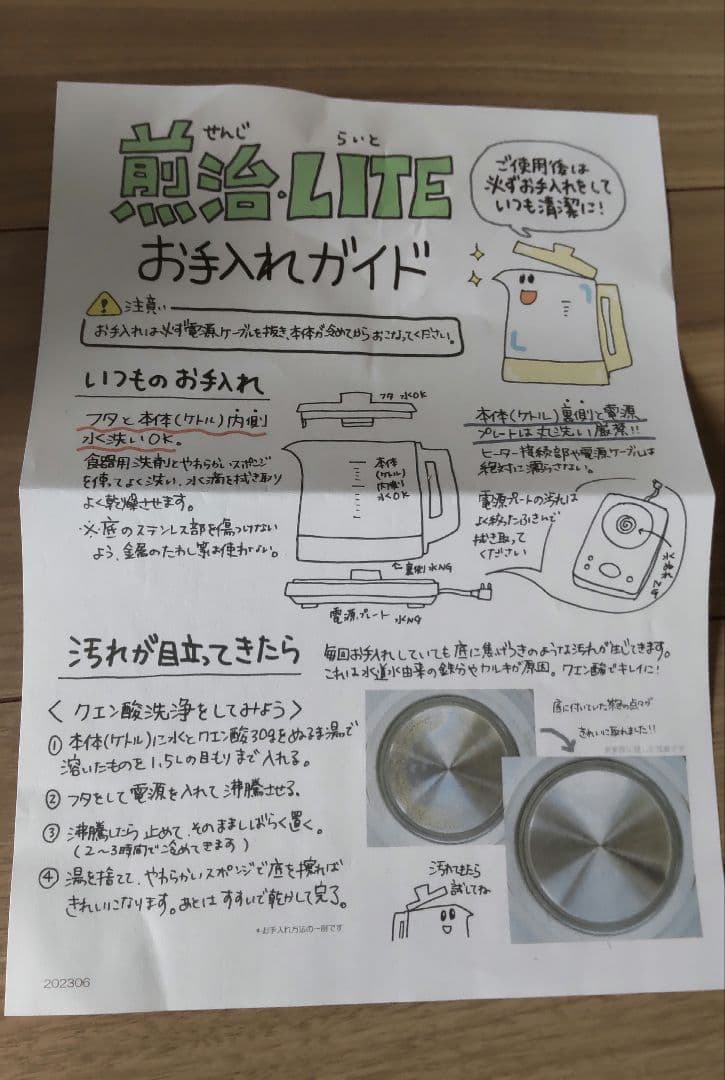 せんじ らいと
煎治・LITE
お手入れガイド
ご使用後は
必ずお手入れをして
いつも清潔に！
注意!!
お手入れは必ず電源ケーブルを抜き、本体が冷めてからおこなってください。
いつものお手入れ
フタと本体(ケトル)内側
水洗いOK。
食器用洗剤とやわらかいスポンジ
を使ってよく洗い、水滴を拭き取り
よく乾燥させます。
※底のステンレス部を傷つけない
よう、金属のたわし等は使わない。
フタ 水OK
本体
(ケトル)
内側
水OK
裏側水NG
電源プレート 水NG
本体(ケトル)裏側と電源
プレートは丸洗い厳禁!!
ヒーター接続部や電源ケーブルは
絶対に濡らさない。
電源プレートの汚れは
よく絞ったふきんで
拭き取って
ください
汚れが目立ってきたら
毎回お手入れしていても底に焦げつきのような汚れが生じてきます。
これは水道水由来の鉄分やカルキが原因。クエン酸でキレイに！
〈クエン酸洗浄をしてみよう〉
① 本体(ケトル)に水とクエン酸30gをぬるま湯で
溶いたものを1.5Lの目もりまで入れる。
② フタをして電源を入れて沸騰させる。
③ 沸騰したら止めて、そのまましばらく置く。
(2〜3時間で冷めてきます)
④ 湯を捨てて、やわらかいスポンジで底を擦れば
きれいになります。あとはすすいで乾かして完了。
*お手入れ方法の一例です
底に付いていた茶色の点々が
きれいに取れました!!
汚れてきたら
試してね
202306